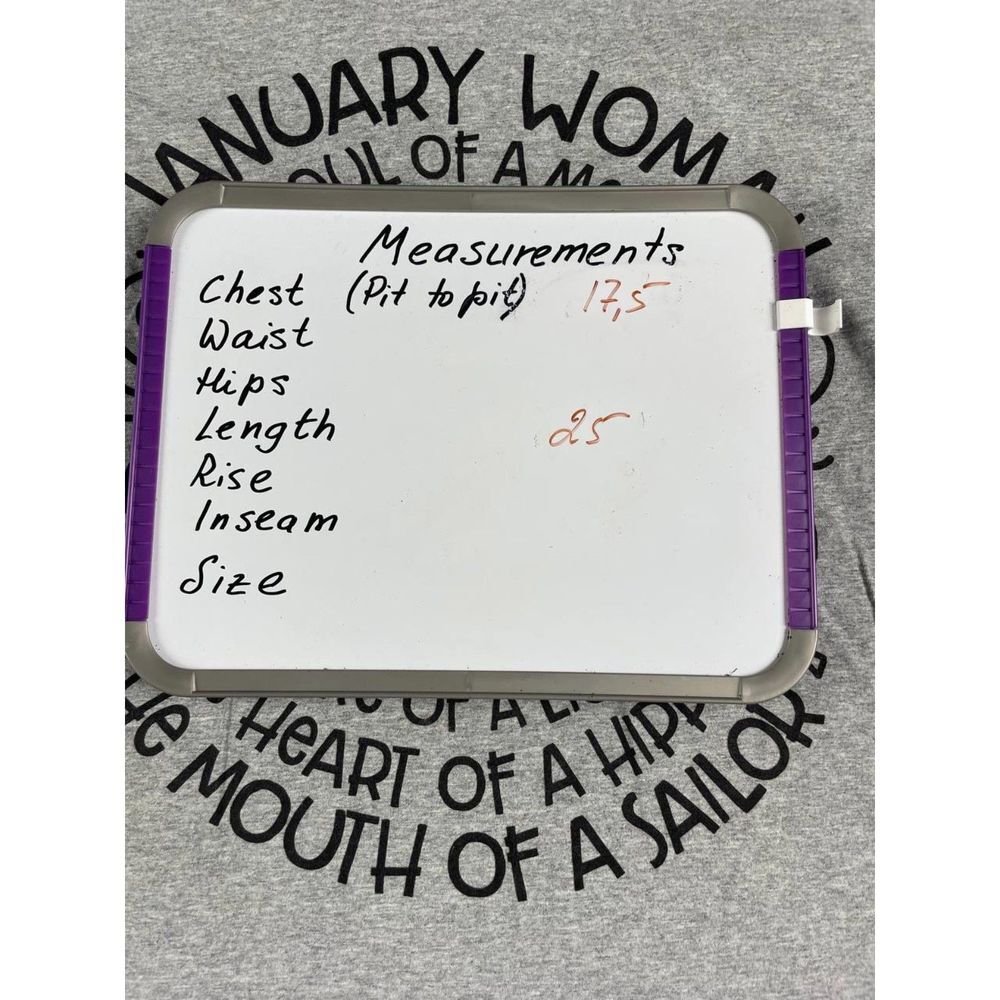 JANUARY WOMA
SOUL OF A M
Measurements
Chest (Pit to pit) 17,5
Waist
Hips
Length 25
Rise
Inseam
Size
OF A LI
HeART OF A HIPP
THe MOUTH OF A SAILOR